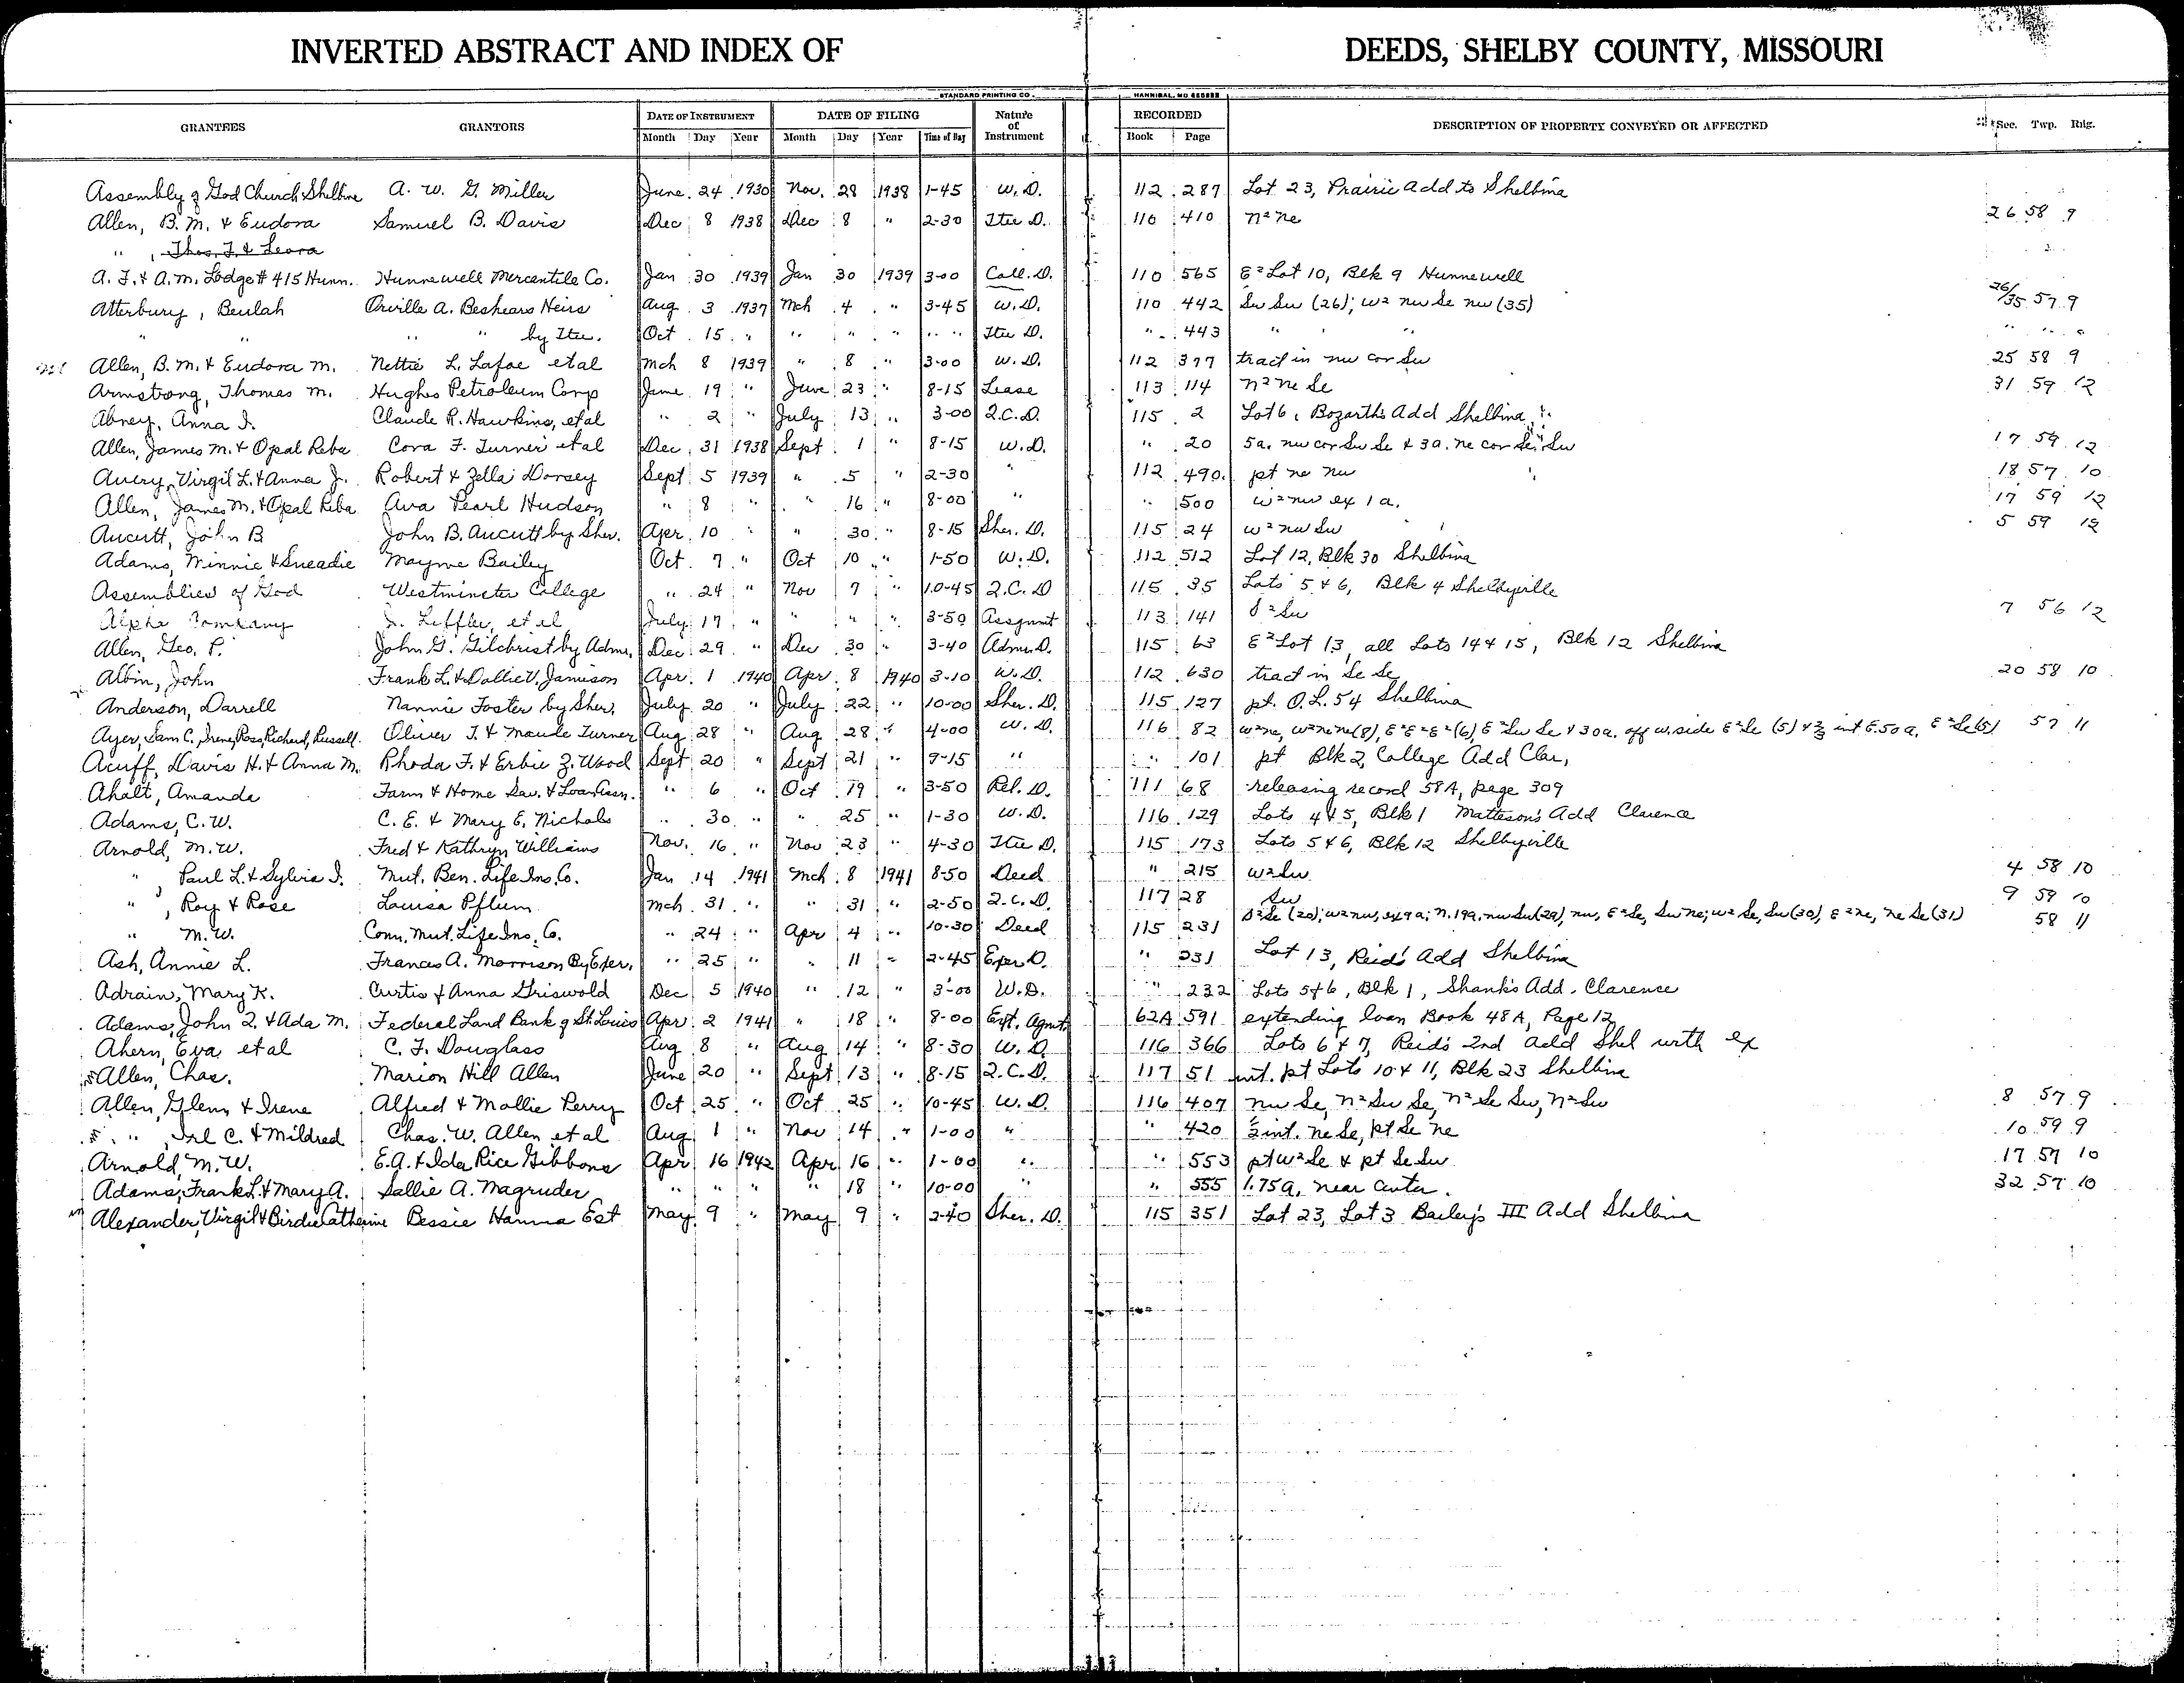 INVERTED ABSTRACT AND INDEX OF DEEDS, SHELBY COUNTY, MISSOURI
STANDARD PRINTING CO. HANNIBAL, MO
GRANTEES GRANTORS DATE OF INSTRUMENT DATE OF FILING Nature of Instrument RECORDED DESCRIPTION OF PROPERTY CONVEYED OR AFFECTED Sec. Twp. Rng.
Month Day Year Month Day Year Time of Day Book Page
Assembly of God Church, Shelbina A. W. G. Miller June 24 1930 Nov. 28 1938 1-45 W. D. 112 287 Lot 23, Prairie Add to Shelbina
Allen, B. M. & Eudora Samuel B. Davis Dec 8 1938 Dec 8 " 2-30 Ttee D. 110 410 N2 Ne 26 58 9
" , Thos. F. & Leora
A. F. & A. M. Lodge # 415 Hunn. Hunnewell Mercantile Co. Jan 30 1939 Jan 30 1939 3-00 Coll. D. 110 565 E2 Lot 10, Blk 9 Hunnewell
Atterbury, Beulah Orville A. Beshears Heirs Aug. 3 1937 Mch 4 " 3-45 W. D. 110 442 Sw Sw (26); W2 Nw Se Nw (35) 26/35 57 9
" " " " by Ttee. Oct 15 " " " " " " Ttee D. " 443 " " " " " "
Allen, B. M. & Eudora M. Nettie L. Lafoe et al Mch 8 1939 " 8 " 3-00 W. D. 112 377 tract in Nw cor Sw 25 58 9
Armstrong, Thomas M. Hughes Petroleum Corp June 19 " June 23 " 8-15 Lease 113 114 N2 Ne Se 31 59 12
Abney, Anna I. Claude R. Hawkins, et al " 2 " July 13 " 3-00 Q.C.D. 115 2 Lot 6, Bozarth's Add Shelbina
Allen, James M. & Opal Reba Cora F. Turner et al Dec 31 1938 Sept 1 " 8-15 W. D. " 20 5a. Nw cor Sw Se & 3a. Ne cor Se Sw 17 59 12
Avery, Virgil L. & Anna J. Robert & Zella Dorsey Sept 5 1939 " 5 " 2-30 " 112 490 pt Ne Nw 18 57 10
Allen, James M. & Opal Reba Ava Pearl Hudson " 8 " " 16 " 8-00 " " 500 W2 Nw ex 1 a. 17 59 12
Aucutt, John B John B. Aucutt by Sher. Apr. 10 " " 30 " 8-15 Sher. D. 115 24 W2 Nw Sw 5 59 12
Adams, Minnie & Sneadie Mayme Bailey Oct. 7 " Oct 10 " 1-50 W. D. 112 512 Lot 12, Blk 30 Shelbina
Assemblies of God Westminster College " 24 " Nov 7 " 10-45 Q.C.D 115 35 Lots 5 & 6, Blk 4 Shelbyville
Alpha Company J. Leffler, et al July 17 " " " " 3-50 Assgnmt 113 141 S2 Sw 7 56 12
Allen, Geo. P. John G. Gilchrist by Admr. Dec 29 " Dec 30 " 3-40 Admr D. 115 63 E2 Lot 13, all Lots 14 & 15, Blk 12 Shelbina
Albin, John Frank L. & Dollie V. Jamison Apr. 1 1940 Apr. 8 1940 3-10 W. D. 112 630 tract in Se Se 20 58 10
Anderson, Darrell Nannie Foster by Sher. July 20 " July 22 " 10-00 Sher. D. 115 127 pt. O.L. 54 Shelbina
Ayer, Sam C., Irene, Ross, Richard, Russell Oliver T. & Maude Turner Aug 28 " Aug 28 " 4-00 W. D. 116 82 W2 Ne, W2 Ne Ne (8), E2 E2 E2 (6) E2 Sw Se & 30a. off W. side E2 Se (5) & int E. 50 a. E2 Se (5) 57 11
Acuff, Davis H. & Anna M. Rhoda F. & Erbie Z. Wood Sept 20 " Sept 21 " 9-15 " " 101 pt Blk 2, College Add Clar.
Ahalt, Amanda Farm & Home Sav. & Loan Assn. " 6 " Oct 19 " 3-50 Rel. D. 111 68 releasing record 58A, page 309
Adams, C. W. C. E. & Mary E. Nichols " 30 " " 25 " 1-30 W. D. 116 129 Lots 4 & 5, Blk 1 Matteson's Add Clarence
Arnold, M. W. Fred & Kathryn Williams Nov. 16 " Nov 23 " 4-30 Ttee D. 115 173 Lots 5 & 6, Blk 12 Shelbyville
" , Paul L. & Sylvia I. Mut. Ben. Life Ins. Co. Jan 14 1941 Mch 8 1941 8-50 Deed " 215 W2 Sw 4 58 10
" , Roy & Rose Louisa Pflum Mch. 31 " " 31 " 2-50 Q.C.D. 117 28 Sw 9 59 10
" M. W. Conn. Mut. Life Ins. Co. " 24 " Apr 4 " 10-30 Deed 115 231 S2 Se (20); W2 Nw, ex 9a; N. 19a. Nw Sw (29), Nw, E2 Se, Sw Ne; W2 Se, Sw (30), E2 Ne, Ne Se (31) 58 11
Ash, Annie L. Frances A. Morrison By Exer. " 25 " " 11 " 2-45 Exer D. " 231 Lot 13, Reid's Add Shelbina
Adrain, Mary K. Curtis & Anna Griswold Dec 5 1940 " 12 " 3-00 W. D. " 232 Lots 5 & 6, Blk 1, Shank's Add. Clarence
Adams, John Q. & Ada M. Federal Land Bank of St. Louis Apr. 2 1941 " 18 " 8-00 Ext. Agmt. 62A 591 extending loan Book 48A, Page 12
Ahern, Eva et al C. F. Douglass Aug 8 " Aug 14 " 8-30 W. D. 116 366 Lots 6 & 7, Reid's 2nd Add Shel with ex
Allen, Chas. Marion Hill Allen June 20 " Sept 13 " 8-15 Q.C.D. 117 51 int. pt Lots 10 & 11, Blk 23 Shelbina
Allen, Glenn & Irene Alfred & Mollie Perry Oct 25 " Oct 25 " 10-45 W. D. 116 407 Nw Se, N2 Sw Se, N2 Se Sw, N2 Sw 8 57 9
" , Irl C. & Mildred Chas. W. Allen et al Aug 1 " Nov 14 " 1-00 " " 420 int. Ne Se, pt Se Ne 10 59 9
Arnold, M. W. E. A. & Ida Rice Gibbons Apr 16 1942 Apr 16 " 1-00 " " 553 pt W2 Se & pt Se Sw 17 57 10
Adams, Frank L. & Mary A. Sallie A. Magruder " " " " 18 " 10-00 " " 555 1.75a, near center. 32 57 10
Alexander, Virgil & Birdie Catherine Bessie Hanna Est May 9 " May 9 " 2-40 Sher. D. 115 351 Lot 23, Lot 3 Bailey's III Add Shelbina